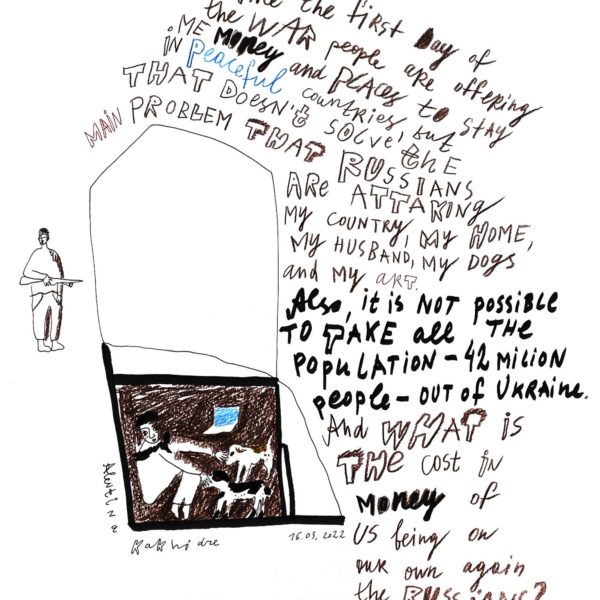 the first Day of
the WAR people are offering
ME MONEY and PLACES to STAY
in Peaceful countries, but
THAT DOESN'T SOLVE the
MAIN PROBLEM THAT RUSSIANS
ARE ATTAKING
MY COUNTRY, MY HOME,
MY HUSBAND, MY DOGS
and MY ART.
Also, it is NOT possible
TO TAKE all THE
POPULATION – 42 MILION
people – OUT OF UKRAINE.
And WHAT is
THE COST in
MONEY of
US being on
OUR OWN again
the RUSSIANS?
Alevtina
Kakhidze
16.03.2022